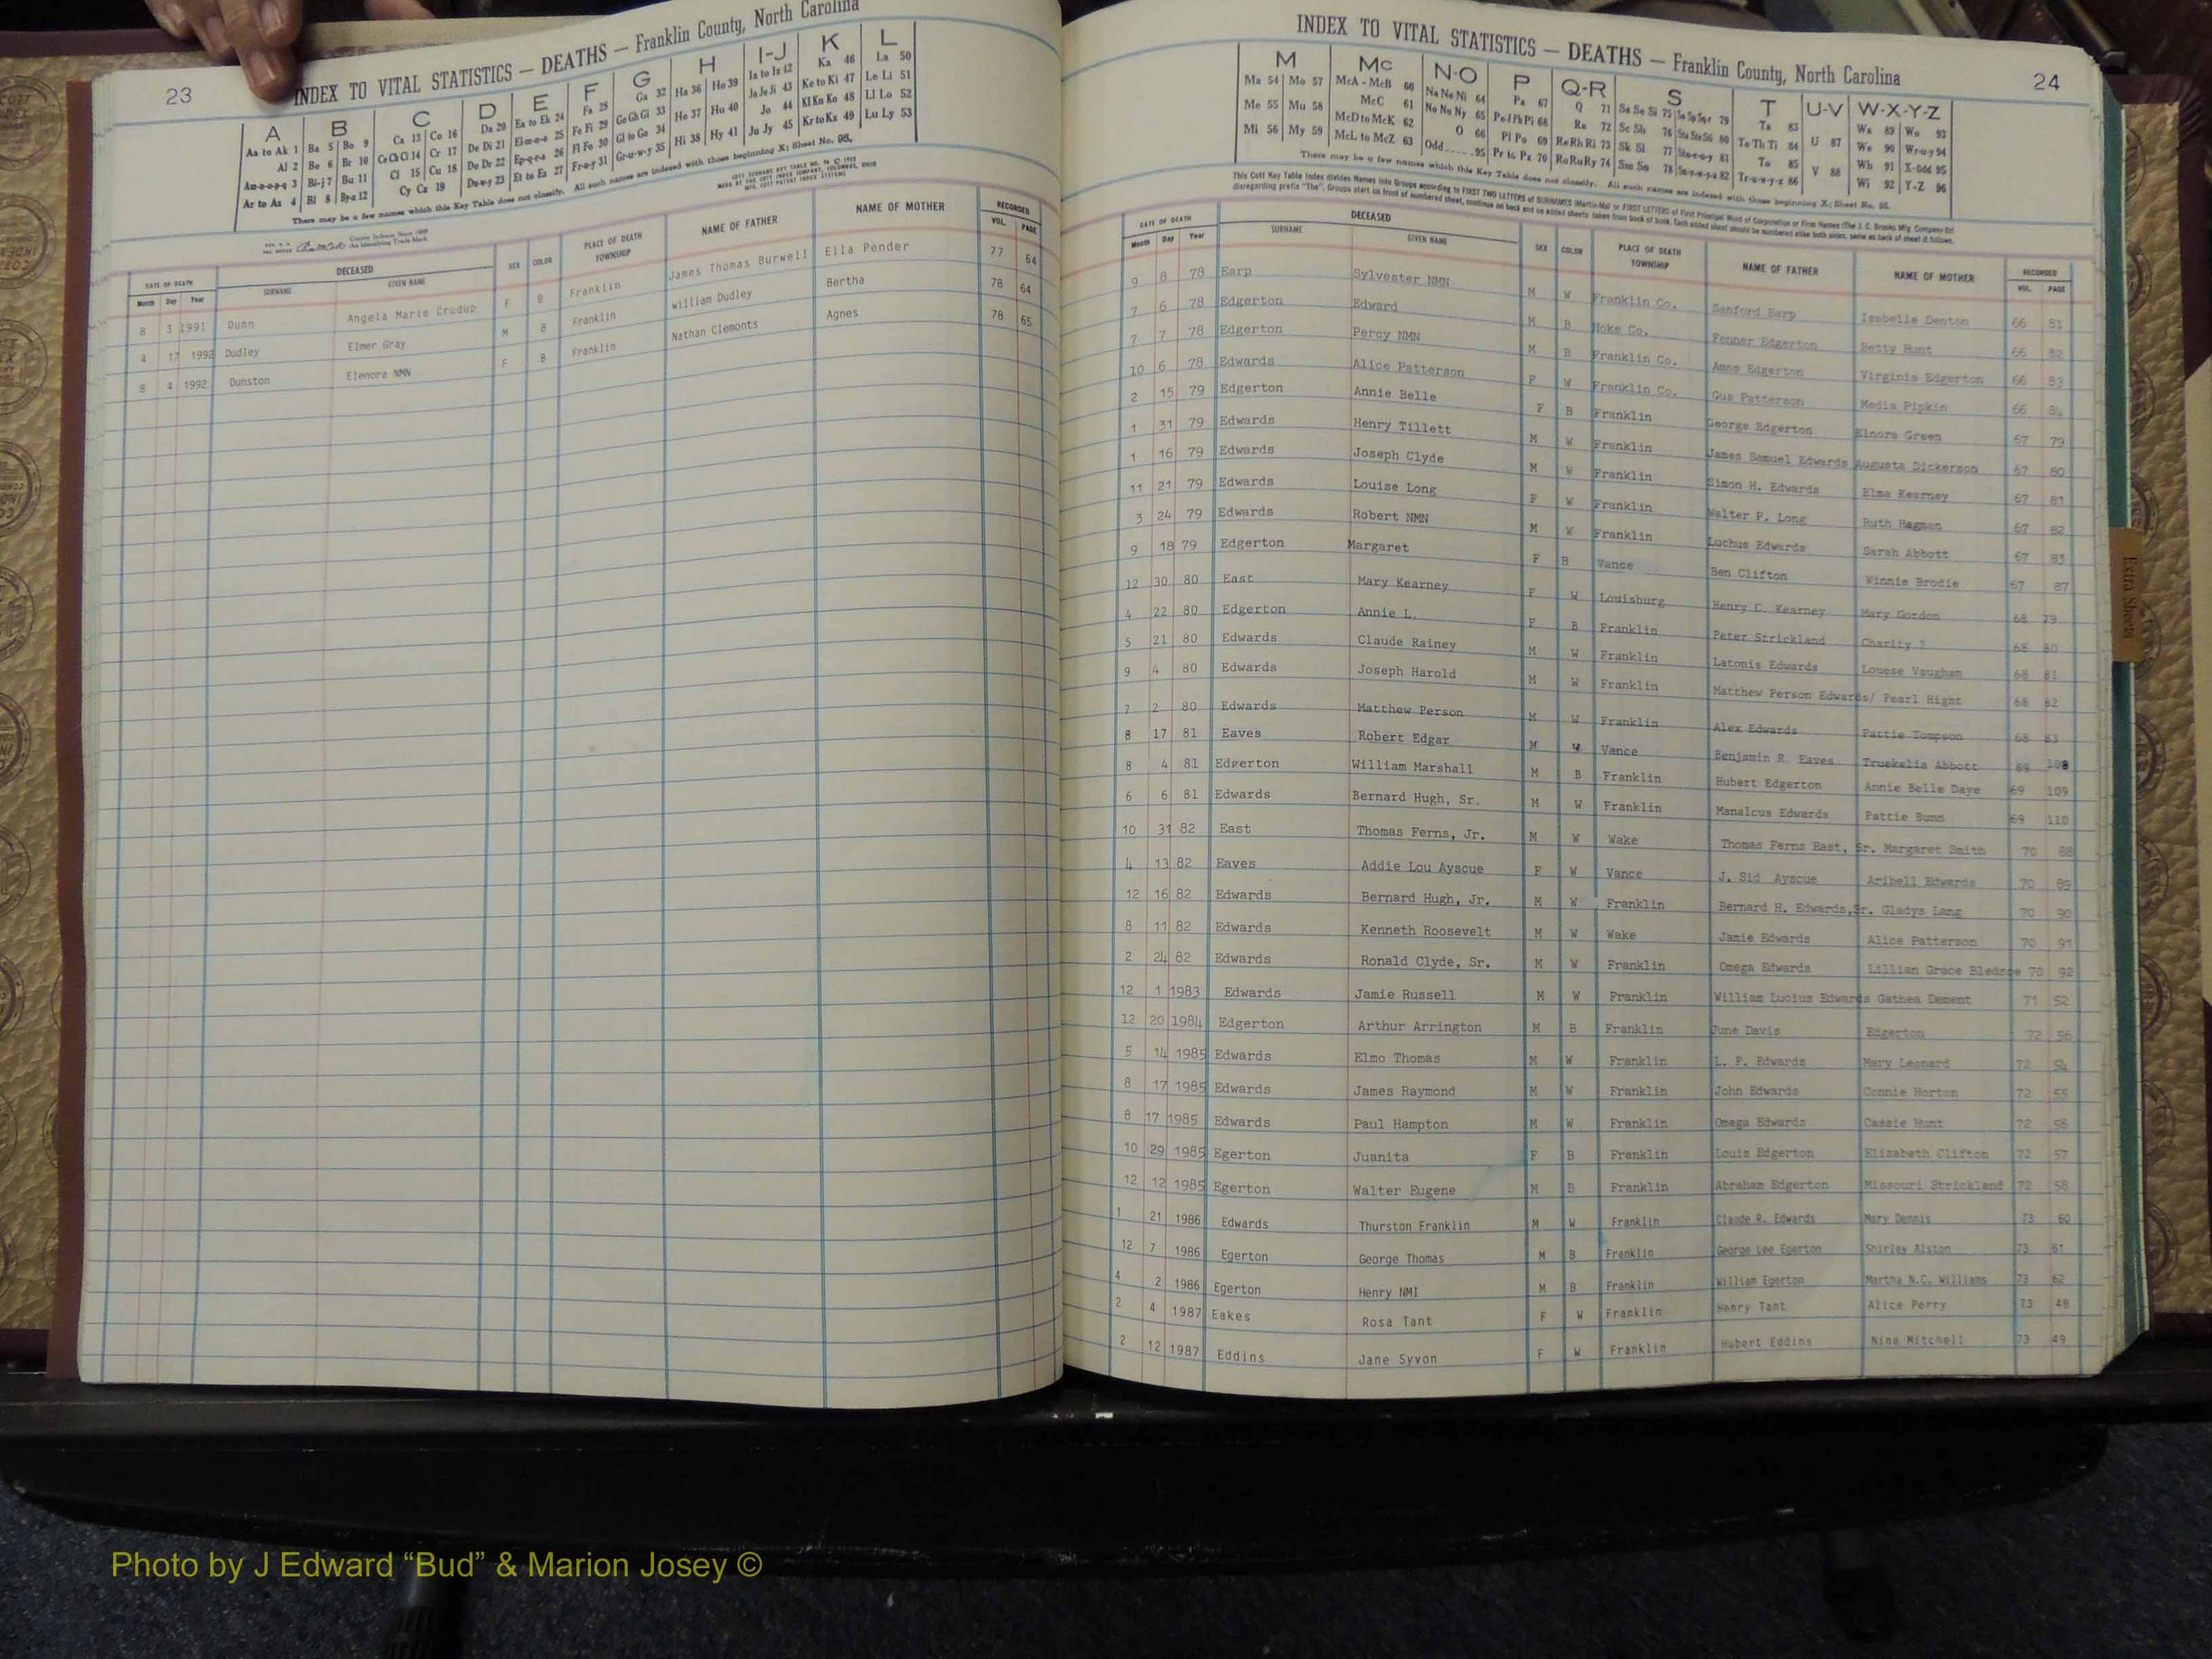 23
INDEX TO VITAL STATISTICS — DEATHS — Franklin County, North Carolina
A B C D E F G H I-J K L
Aa to Ak 1 Ba 5 Bo 9 Ca 13 Co 16 Da 20 Ea to Ek 24 Fa 28 Ga 32 Ha 36 Ho 39 Ia to Iz 42 Ka 46 La 50
Al 2 Be 6 Br 10 Ce Ch Ci 14 Cr 17 De Di 21 El-m-n-o 25 Fe Fi 29 Ge Gh Gi 33 He 37 Hu 40 Ja Je Ji 43 Ke to Ki 47 Le Li 51
Am-n-o-p-q 3 Bi-j 7 Bu 11 Cl 15 Cu 18 Do Dr 22 Ep-q-r-s 26 Fl Fo 30 Gl to Go 34 Hi 38 Hy 41 Jo 44 Kl Kn Ko 48 Ll Lo 52
Ar to Az 4 Bl 8 By-z 12 Cy Cz 19 Du-w-y 23 Et to Ez 27 Fr-u-y 31 Gr-u-w-y 35 Ju Jy 45 Kr to Kz 49 Lu Ly 53
There may be a few names which this Key Table does not classify. All such names are indexed with those beginning X; Sheet No. 98.
DATE OF DEATH DECEASED SEX COLOR PLACE OF DEATH TOWNSHIP NAME OF FATHER NAME OF MOTHER RECORDED
Month Day Year SURNAME GIVEN NAME VOL. PAGE
8 3 1991 Dunn Angela Marie Crudup F B Franklin James Thomas Burwell Ella Pender 77 64
4 17 1992 Dudley Elmer Gray M B Franklin William Dudley Bertha 78 64
8 4 1992 Dunston Elenora NMN F B Franklin Nathan Clemonts Agnes 78 65
INDEX TO VITAL STATISTICS — DEATHS — Franklin County, North Carolina
24
M Mc N-O P Q-R S T U-V W-X-Y-Z
Ma 54 Mo 57 McA - McB 60 Na Ne Ni 64 Pa 67 Q 71 Sa Se Si 75 79 Ta 83 U 87 Wa 89 Wo 93
Me 55 Mu 58 McC 61 No Nu Ny 65 Pe-f Ph Pi 68 Ra 72 Sc Sh 76 80 Te Th Ti 84 V 88 We 90 Wr-u-y 94
Mi 56 My 59 McD to McK 62 O 66 Pl Po 69 Re Rh Ri 73 Sk Sl 77 Sto-r-u-y 81 To 85 Wh 91 X-Odd 95
McL to McZ 63 Odd 95 Pr to Pz 70 Ro Ru Ry 74 Sm Sn 78 82 Tr-u-w-y-z 86 Wi 92 Y-Z 96
There may be a few names which this Key Table does not classify. All such names are indexed with those beginning X; Sheet No. 98.
DATE OF DEATH DECEASED SEX COLOR PLACE OF DEATH TOWNSHIP NAME OF FATHER NAME OF MOTHER RECORDED
Month Day Year SURNAME GIVEN NAME VOL. PAGE
9 8 78 Earp Sylvester NMN M W Franklin Co. Sanford Earp Izabelle Denton 66 81
7 6 78 Edgerton Edward M B Hoke Co. Fenner Edgerton Betty Hunt 66 82
7 7 78 Edgerton Percy NMN M B Franklin Co. Amos Edgerton Virginia Edgerton 66 83
10 6 78 Edwards Alice Patterson F W Franklin Co. Gus Patterson Media Pipkin 66 84
2 15 79 Edgerton Annie Belle F B Franklin George Edgerton Elnora Green 67 79
1 31 79 Edwards Henry Tillett M W Franklin James Samuel Edwards Augusta Dickerson 67 80
1 16 79 Edwards Joseph Clyde M W Franklin Simon H. Edwards Elma Kearney 67 81
11 21 79 Edwards Louise Long F W Franklin Walter P. Long Ruth Hagman 67 82
3 24 79 Edwards Robert NMN M W Franklin Luchus Edwards Sarah Abbott 67 83
9 18 79 Edgerton Margaret F B Vance Ben Clifton Winnie Brodie 67 87
12 30 80 East Mary Kearney F W Louisburg Henry C. Kearney Mary Gordon 68 79
4 22 80 Edgerton Annie L. F B Franklin Peter Strickland Charity ? 68 80
5 21 80 Edwards Claude Rainey M W Franklin Latonis Edwards Louese Vaughan 68 81
9 4 80 Edwards Joseph Harold M W Franklin Matthew Person Edwards/ Pearl Hight 68 82
7 2 80 Edwards Matthew Person M W Franklin Alex Edwards Pattie Tompson 68 83
8 17 81 Eaves Robert Edgar M W Vance Benjamin R. Eaves Truekelia Abbott 69 108
8 4 81 Edgerton William Marshall M B Franklin Hubert Edgerton Annie Belle Daye 69 109
6 6 81 Edwards Bernard Hugh, Sr. M W Franklin Manalcus Edwards Pattie Bunn 69 110
10 31 82 East Thomas Ferns, Jr. M W Wake Thomas Ferns East, Sr. Margaret Smith 70 88
4 13 82 Eaves Addie Lou Ayscue F W Vance J. Sid Ayscue Aribell Edwards 70 89
12 16 82 Edwards Bernard Hugh, Jr. M W Franklin Bernard H. Edwards,Sr. Gladys Lang 70 90
8 11 82 Edwards Kenneth Roosevelt M W Wake Jamie Edwards Alice Patterson 70 91
2 24 82 Edwards Ronald Clyde, Sr. M W Franklin Omega Edwards Lillian Grace Bledsoe 70 92
12 1 1983 Edwards Jamie Russell M W Franklin William Lucius Edwards Gathea Dement 71 52
12 20 1984 Edgerton Arthur Arrington M B Franklin June Davis Edgerton 72 56
5 14 1985 Edwards Elmo Thomas M W Franklin L. F. Edwards Mary Leonard 72 54
8 17 1985 Edwards James Raymond M W Franklin John Edwards Connie Horton 72 55
8 17 1985 Edwards Paul Hampton M W Franklin Omega Edwards Cassie Hunt 72 56
10 29 1985 Egerton Juanita F B Franklin Louis Edgerton Elizabeth Clifton 72 57
12 12 1985 Egerton Walter Eugene M B Franklin Abraham Edgerton Missouri Strickland 72 58
1 21 1986 Edwards Thurston Franklin M W Franklin Claude R. Edwards Mary Dennis 73 60
12 7 1986 Egerton George Thomas M B Franklin George Lee Egerton Shirley Alston 73 61
4 2 1986 Egerton Henry NMI M B Franklin William Egerton Martha N.C. Williams 73 62
2 4 1987 Eakes Rosa Tant F W Franklin Henry Tant Alice Perry 73 48
2 12 1987 Eddins Jane Syvon F W Franklin Hubert Eddins Nina Mitchell 73 49
Extra Sheets
Photo by J Edward “Bud” & Marion Josey ©